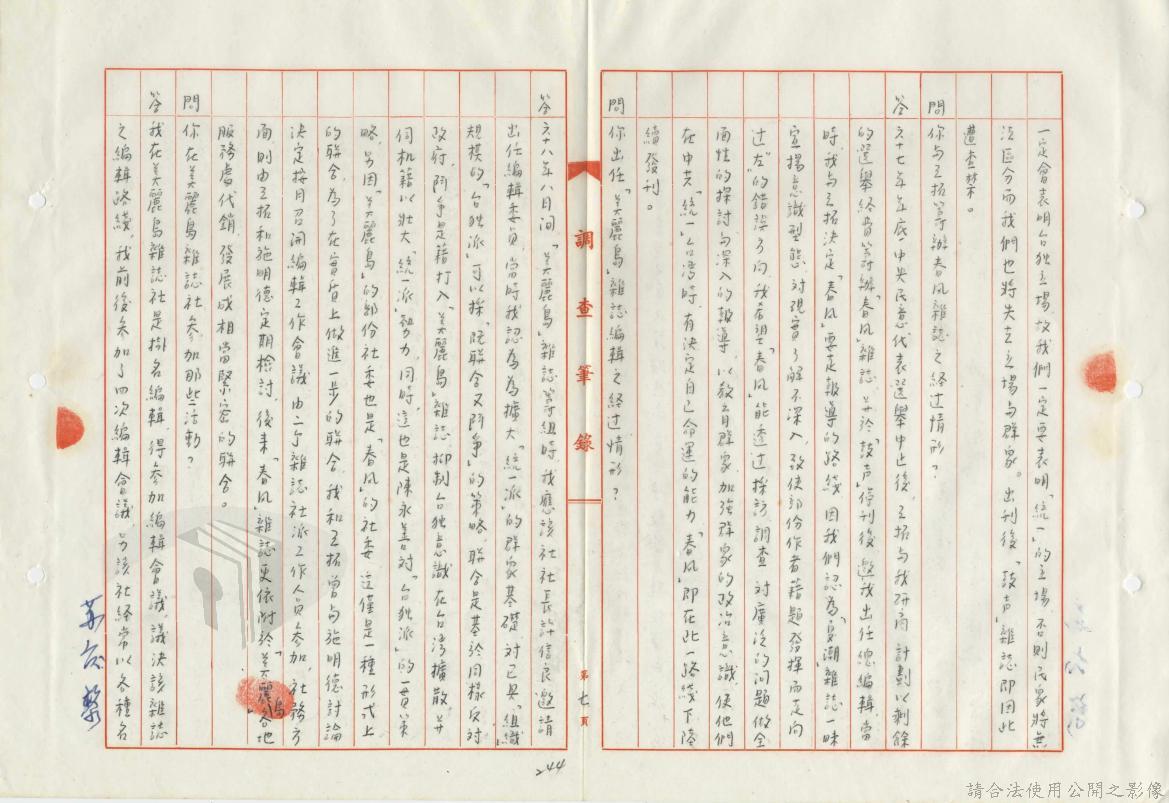 一定會表明台独立場,故我們一定要表明「統一」的立場,否則民衆將無
法區分而我們也將失去立場与群衆。出刊後「鼓声」雜誌即因此
遭查禁。
問 你与王拓等辦春風雜誌之經过情形?
答 六十七年年底,中央民意代表選舉中止後,王拓与我研商,計劃以剩餘
的選舉經費籌辦「春風」雜誌,并於「鼓声」停刊後邀我出任總編輯,當
時,我与王拓決定「春風」要走報導的路綫,因我們認為「夏潮」雜誌一昧
宣揚意識型態,対現實了解不深入,致使部份作者藉題發揮而走向
过左"的錯誤方向,我希望「春風」能透过採訪調查,対廣泛的问題做全
面性的探討与深入的報導,以教育群衆,加強群衆的政治意識,使他們
在中共「統一」台湾時,有決定自己命運的能力,「春風」即在此一路綫下陸
續發刊。
問 你出任「美麗島」雜誌編輯之經过情形?
調查筆錄
第七頁
答 六十八年八月间,「美麗島」雜誌籌組時,我應該社社長許信良邀請
出任編輯委員,當時我認為為擴大「統一派」的群衆基礎,対已具「組織
規模的「台独派」可以採「既聯合又鬥争」的策略,聯合是基於同樣反対
政府,鬥争是藉打入「美麗島」雜誌,抑制台独意識在台湾擴散,并
伺机籍以壯大「統一派」勢力,同時,這也是陳永善対「台独派」的一貫策
略,另因「美麗島」的部份社委也是「春風」的社委,這僅是一種形式上
的聯合,為了在實質上做進一步的聯合,我和王拓曾与施明德討論
決定按月召開編輯工作會議,由二个雜誌社派工作人員參加,社務方
面,則由王拓和施明德定期檢討,後来「春風」雜誌更依附於「美麗島」各地
服務處代銷,發展成相當緊密的聯合。
問 你在美麗島雜誌社参加那些活動?
答 我在美麗島雜誌社是掛名編輯,得参加編輯會議,議決該雜誌
之編輯路綫,我前後参加了四次編輯會議,另該社經常以各種名
244
請合法使用公開之影像